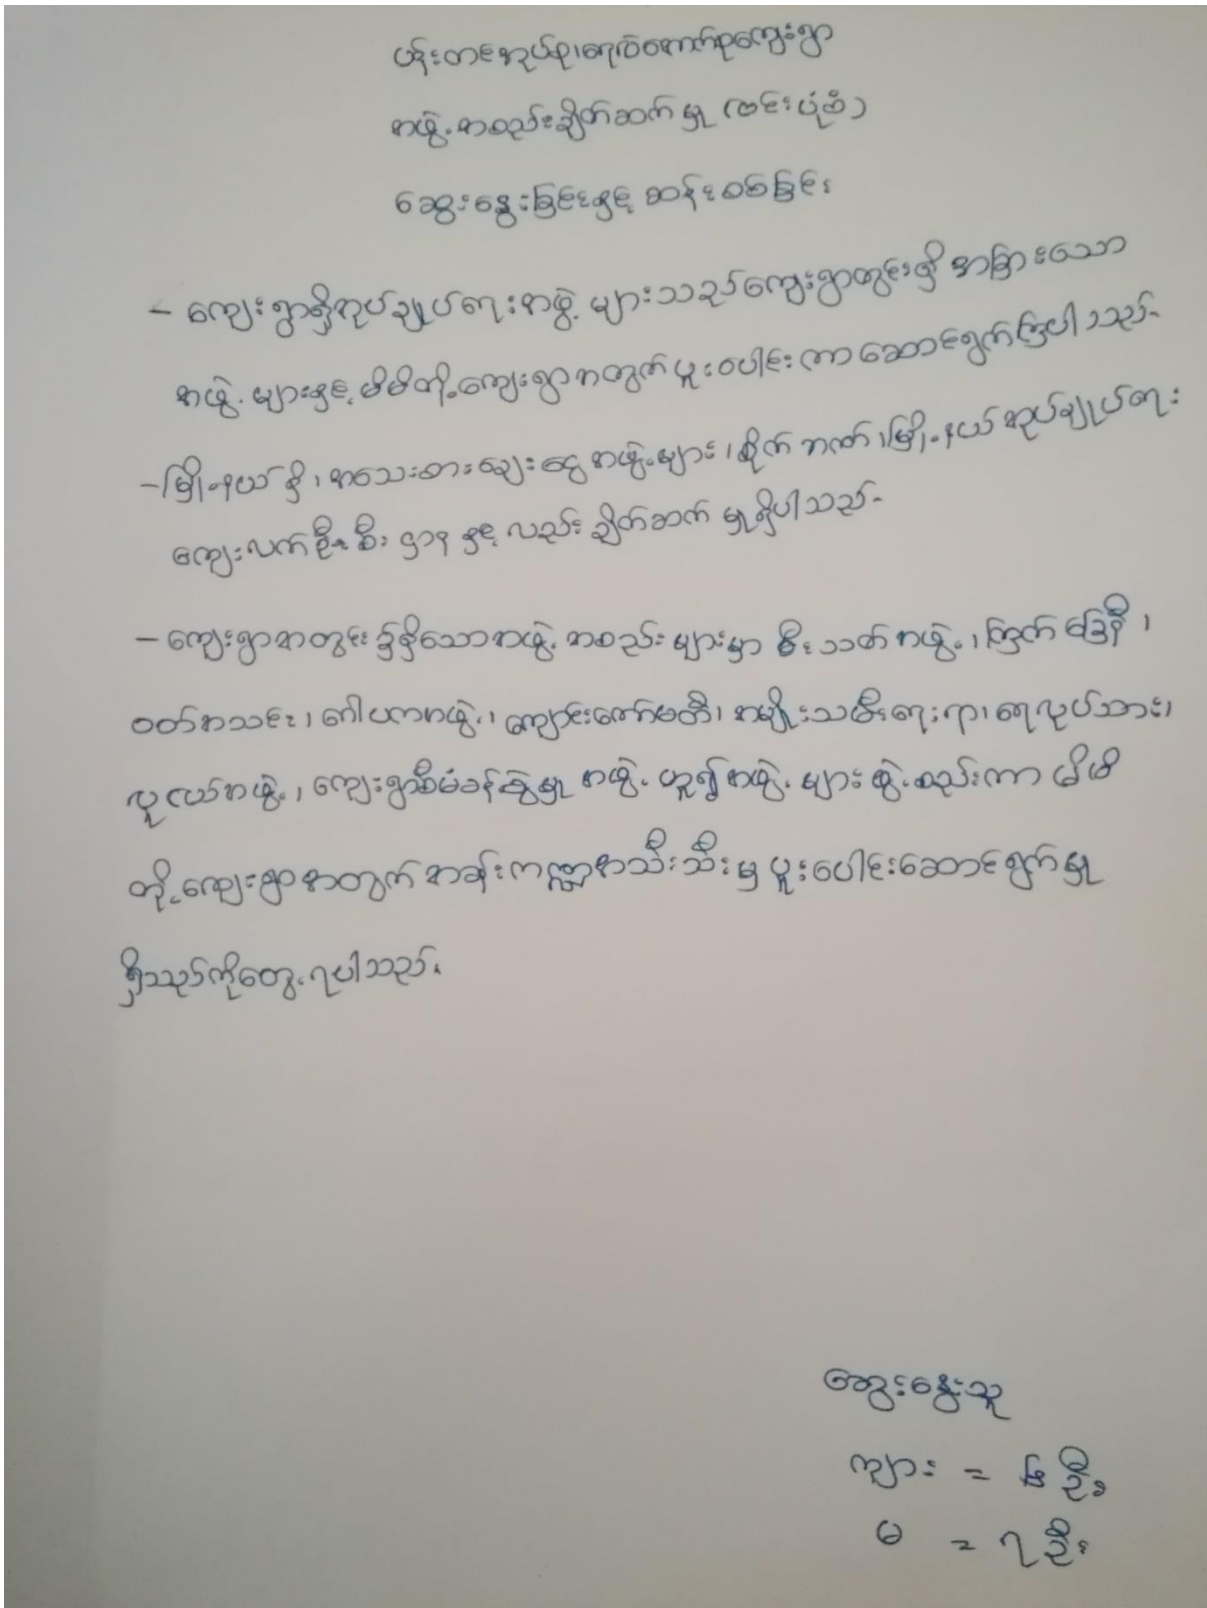 ပန်းတင်အုပ်စု၊ရေလဲကောက်စုကျေးရွာ
အဖွဲ့အစည်းချိတ်ဆက်မှု (ဗင်းပုံစံ)
ဆွေးနွေးခြင်းနှင့် ဆန်းစစ်ခြင်း
- ကျေးရွာရှိအုပ်ချုပ်ရေးအဖွဲ့ များသည်ကျေးရွာတွင်းရှိ အခြားသော
အဖွဲ့များနှင့် မိမိတို့ကျေးရွာအတွက် ပူးပေါင်းကာဆောင်ရွက်ကြပါသည်။
- မြို့နယ်ရှိ၊ အသေးစားချေးငွေအဖွဲ့များ၊ စိုက်ဘဏ်၊ မြို့နယ်အုပ်ချုပ်ရေး
ကျေးလက်ဦးစီးဌာနနှင့်လည်း ချိတ်ဆက်မှုရှိပါသည်။
- ကျေးရွာအတွင်း၌ရှိသောအဖွဲ့အစည်းများမှာ မီးသတ်အဖွဲ့၊ ကြက်ခြေနီ၊
ဝတ်အသင်း၊ ဂေါပကအဖွဲ့၊ ကျောင်းကော်မတီ၊ အမျိုးသမီးရေးရာ၊ ရေလုပ်သား၊
လူငယ်အဖွဲ့၊ ကျေးရွာစီမံခန့်ခွဲမှု အဖွဲ့ဟူ၍အဖွဲ့များဖွဲ့စည်းကာ မိမိ
တို့ကျေးရွာအတွက် အခန်းကဏ္ဍအသီးသီးမှ ပူးပေါင်းဆောင်ရွက်မှု
ရှိသည်ကိုတွေ့ရပါသည်။
ဆွေးနွေးသူ
ကျား = ၆ ဦး
မ = ၇ ဦး